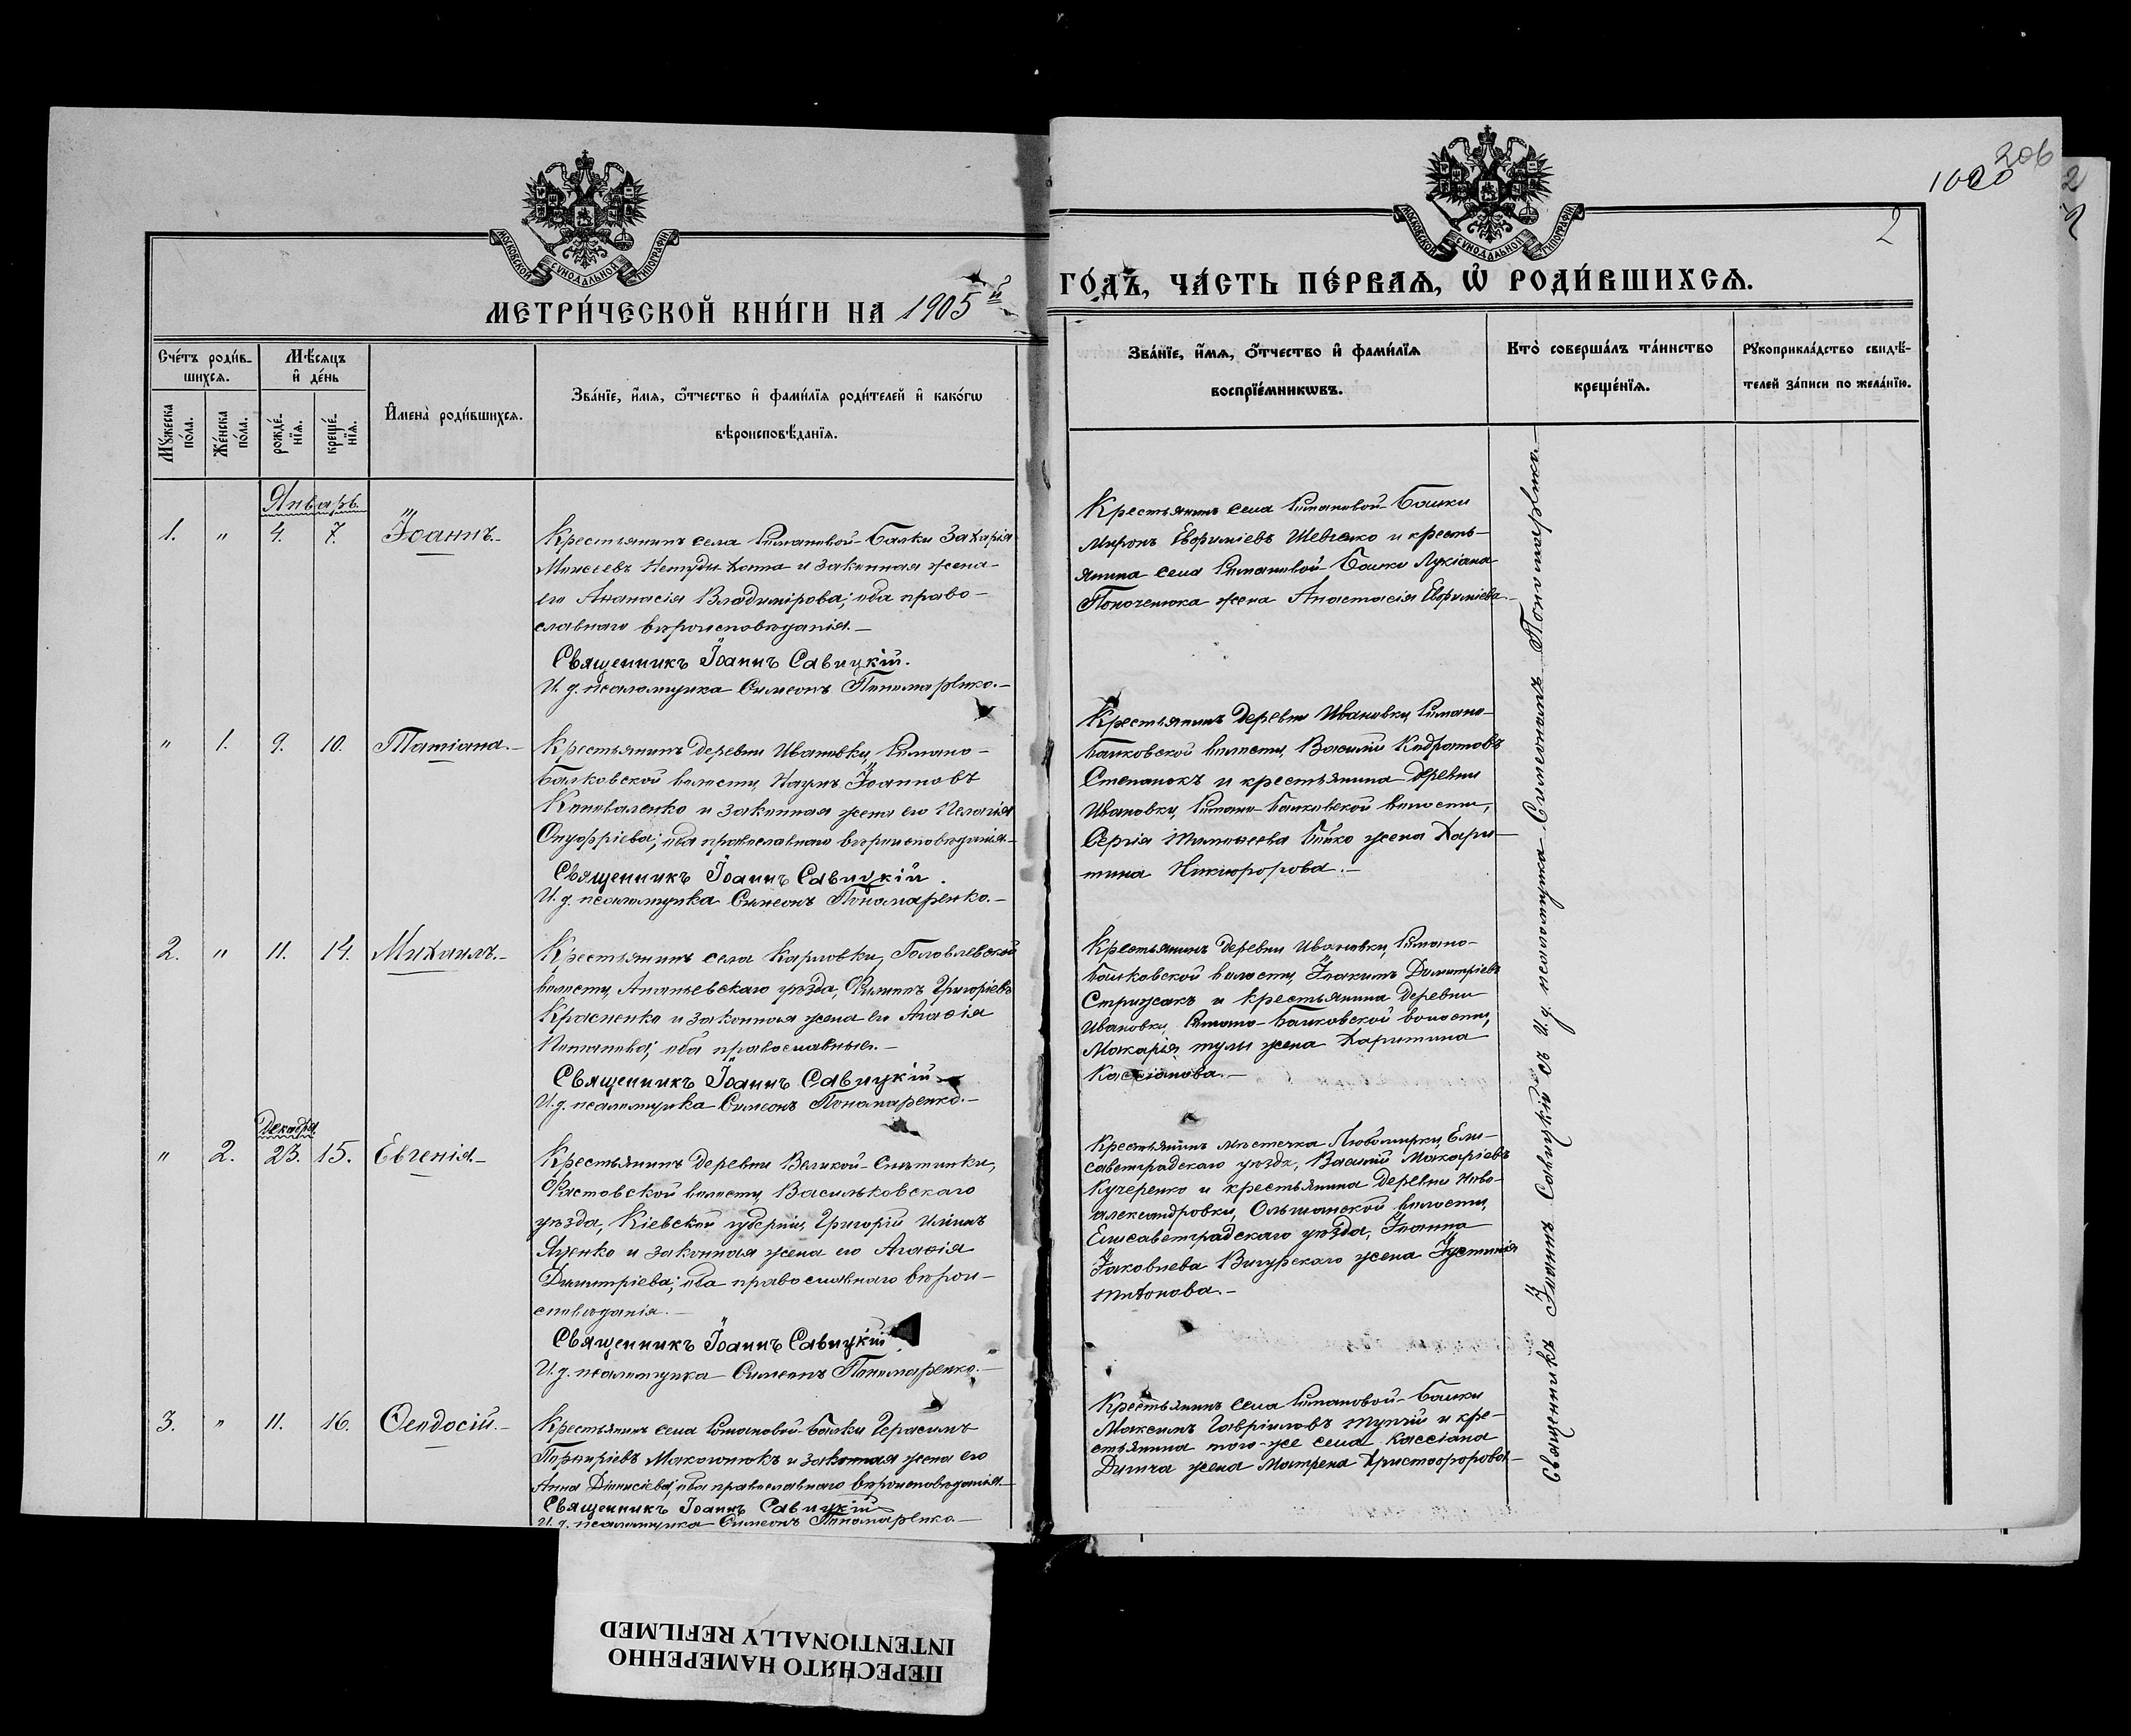 206
1000
2
2
МОСКОВСКОЙ СѴНОДАЛЬНОЙ ТИПОГРАФІИ
МОСКОВСКОЙ СѴНОДАЛЬНОЙ ТИПОГРАФІИ
МЕТРИ́ЧЕСКОЙ КНИ́ГИ НА 1905й
ГО́ДЪ, ЧА́СТЬ ПЕ́РВАЯ, Ѡ҆ РОДИ́ВШИХСЯ.
Сче́тъ роди́в-
шихся.
Мѣ́сяцъ
и҆ де́нь
Мꙋ́жеска по́ла.
Же́нска по́ла.
рожде́-
нїя.
креще́-
нїя.
И҆мена̀ роди́вшихся.
Зва́нїе, и҆́мя, ѻ҆́тчество и҆ фами́лїя роди́телей и҆ како́гѡ
вѣроисповѣ́данїя.
Зва́нїе, и҆́мя, ѻ҆́тчество и҆ фами́лїя
воспрїе́мникѡвъ.
Кто̀ соверша́лъ та́инство
креще́нїя.
Рꙋкоприкла́дство свидѣ́-
телей за́писи по жела́нїю.
Январь.
1. " 4. 7. Іоаннъ.-
Крестьянинъ села Романовой-Балки Захарія
Моисеевъ Нетудыхата и законная жена
его Анастасія Владимірова; оба право-
славнаго вѣроисповѣданія.-
Священникъ Іоаннъ Савицкій.
И. д. псаломщика Симеонъ Пономаренко.-
Крестьянинъ села Романовой-Балки
Миронъ Евфиміевъ Шевченко и кресть-
янина села Романовой-Балки Лукіана
жена Анастасія Евфиміева.-
" 1. 9. 10. Татіана.-
Крестьянинъ деревни Ивановки, Романо-
Балковской волости, Наумъ Іоанновъ
Коноваленко и законная жена его Пелагія
Онуфріева; оба православнаго вѣроисповѣданія.-
Священникъ Іоаннъ Савицкій.
И. д. псаломщика Симеонъ Пономаренко.-
Крестьянинъ деревни Ивановки, Романо-
Балковской волости, Василій Кодратовъ
Степанокъ и крестьянина деревни
Ивановки, Романо-Балковской волости,
Сергія Тимофеева Бойко жена Хари-
тина Никифорова.-
2. " 11. 14. Михаилъ.-
Крестьянинъ села Карловки, Головлевской
волости, Ананьевскаго уѣзда, Филиппъ Григоріевъ
Красненко и законная жена его Агафія
Потапова; оба православные.-
Священникъ Іоаннъ Савицкій
И. д. псаломщика Симеонъ Пономаренко.-
Крестьянинъ деревни Ивановки, Романо-
Балковской волости, Іоакимъ Димитріевъ
Стрижакъ и крестьянина деревни
Ивановки, Романо-Балковской волости,
Макарія Тули жена Харитина
Кассіанова.-
Декабря
" 2. 23. 15. Евгенія.-
Крестьянинъ деревни Великой-Снѣтинки,
Фастовской волости, Васильковскаго
уѣзда, Кіевской губерніи, Григорій Иліинъ
Яценко и законная жена его Агафія
Димитріева; оба православнаго вѣрои-
споведанія.-
Священникъ Іоаннъ Савицкій
И. д. псаломщика Симеонъ Пономаренко.-
Крестьянинъ мѣстечка Любомирки, Ели-
саветградскаго уѣзда, Василій Макаріевъ
Кучеренко и крестьянина деревни Ново-
александровки, Ольшанской волости,
Елисаветградскаго уѣзда, Іоанна
Іаковлева Вигурскаго жена Іустинія
Титонова.-
3. " 11. 16. Ѳеодосій.-
Крестьянинъ села Романовой-Балки Герасимъ
Порфиріевъ Макогонюкъ и законная жена его
Анна Діонисіева; оба православнаго вѣроисповѣданія.-
Священникъ Іоаннъ Савицкій
И. д. псаломщика Симеонъ Пономаренко.-
Крестьянинъ села Романовой-Балки
Максимъ Гавріиловъ Тупчій и кре-
стьянина того-же села Кассіана
Дышча жена Матрена Христофорова.-
Священникъ Іоаннъ Савицкій съ И. д. псаломщика Симеономъ Пономаренко.-
ПЕРЕСНЯТО НАМЕРЕННО
INTENTIONALLY REFILMED